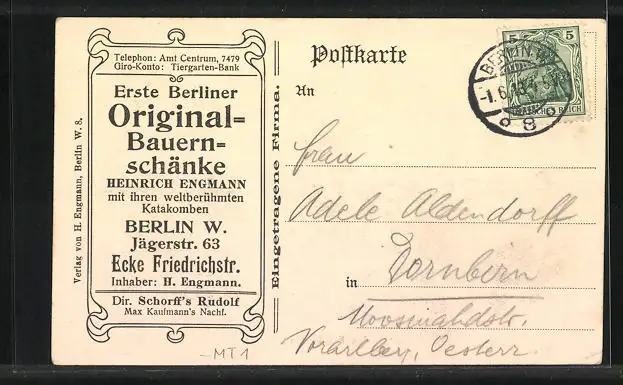 Telephon: Amt Centrum, 7479
Giro-Konto: Tiergarten-Bank
Erste Berliner
Original=
Bauern=
schänke
HEINRICH ENGMANN
mit ihren weltberühmten
Katakomben
BERLIN W.
Jägerstr. 63
Ecke Friedrichstr.
Inhaber: H. Engmann.
Dir. Schorff's Rudolf
Max Kaufmann's Nachf.
Verlag von H. Engmann, Berlin W. 8.
Eingetragene Firma.
Postkarte
An
Frau
Adele Aldendorff
in Dornbirn
Vorarlberg, Oesterr.
5 5
BERLIN W
8
MT1